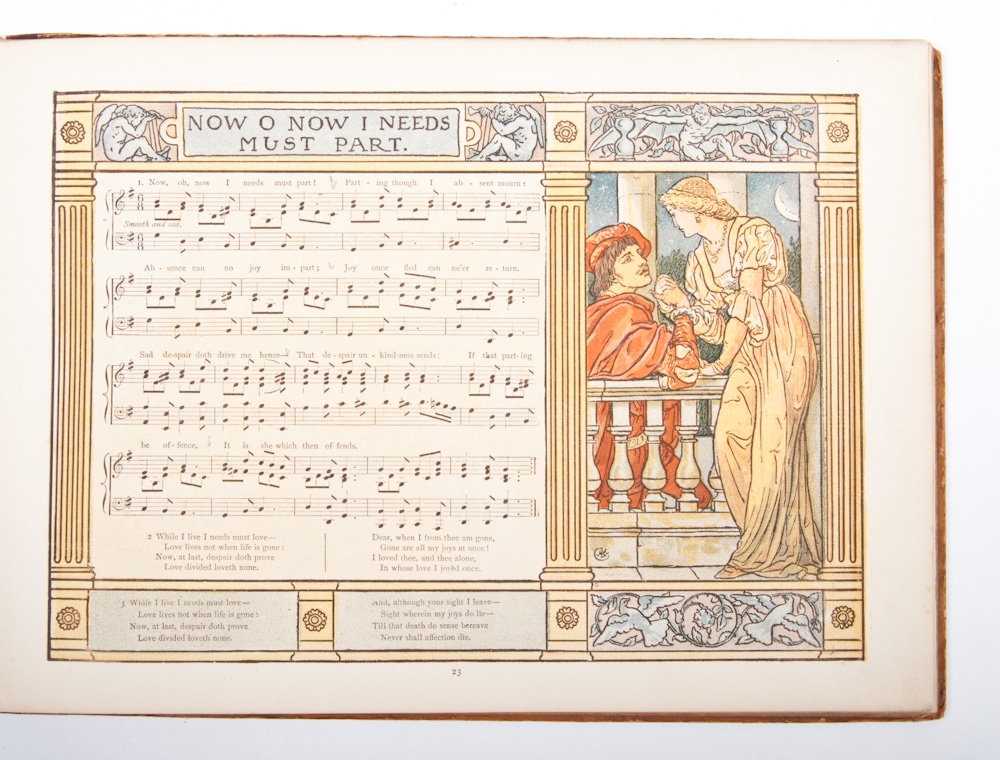 NOW O NOW I NEEDS
MUST PART.
1. Now, oh, now I needs must part! Part - ing though I ab - sent mourn:
Smooth and sad.
Ab - sence can no joy im - part; Joy once fled can ne'er re - turn.
Sad de-spair doth drive me hence— That de - spair un - kind-ness sends: If that part-ing
be of - fence, It is she which then of-fends.
2 While I live I needs must love—
Love lives not when life is gone:
Now, at last, despair doth prove
Love divided loveth none.
Dear, when I from thee am gone,
Gone are all my joys at once!
I loved thee, and thee alone,
In whose love I joyèd once.
3 While I live I needs must love—
Love lives not when life is gone:
Now, at last, despair doth prove
Love divided loveth none.
And, although your sight I leave—
Sight wherein my joys do lie—
Till that death do sense bereave
Never shall affection die.
23